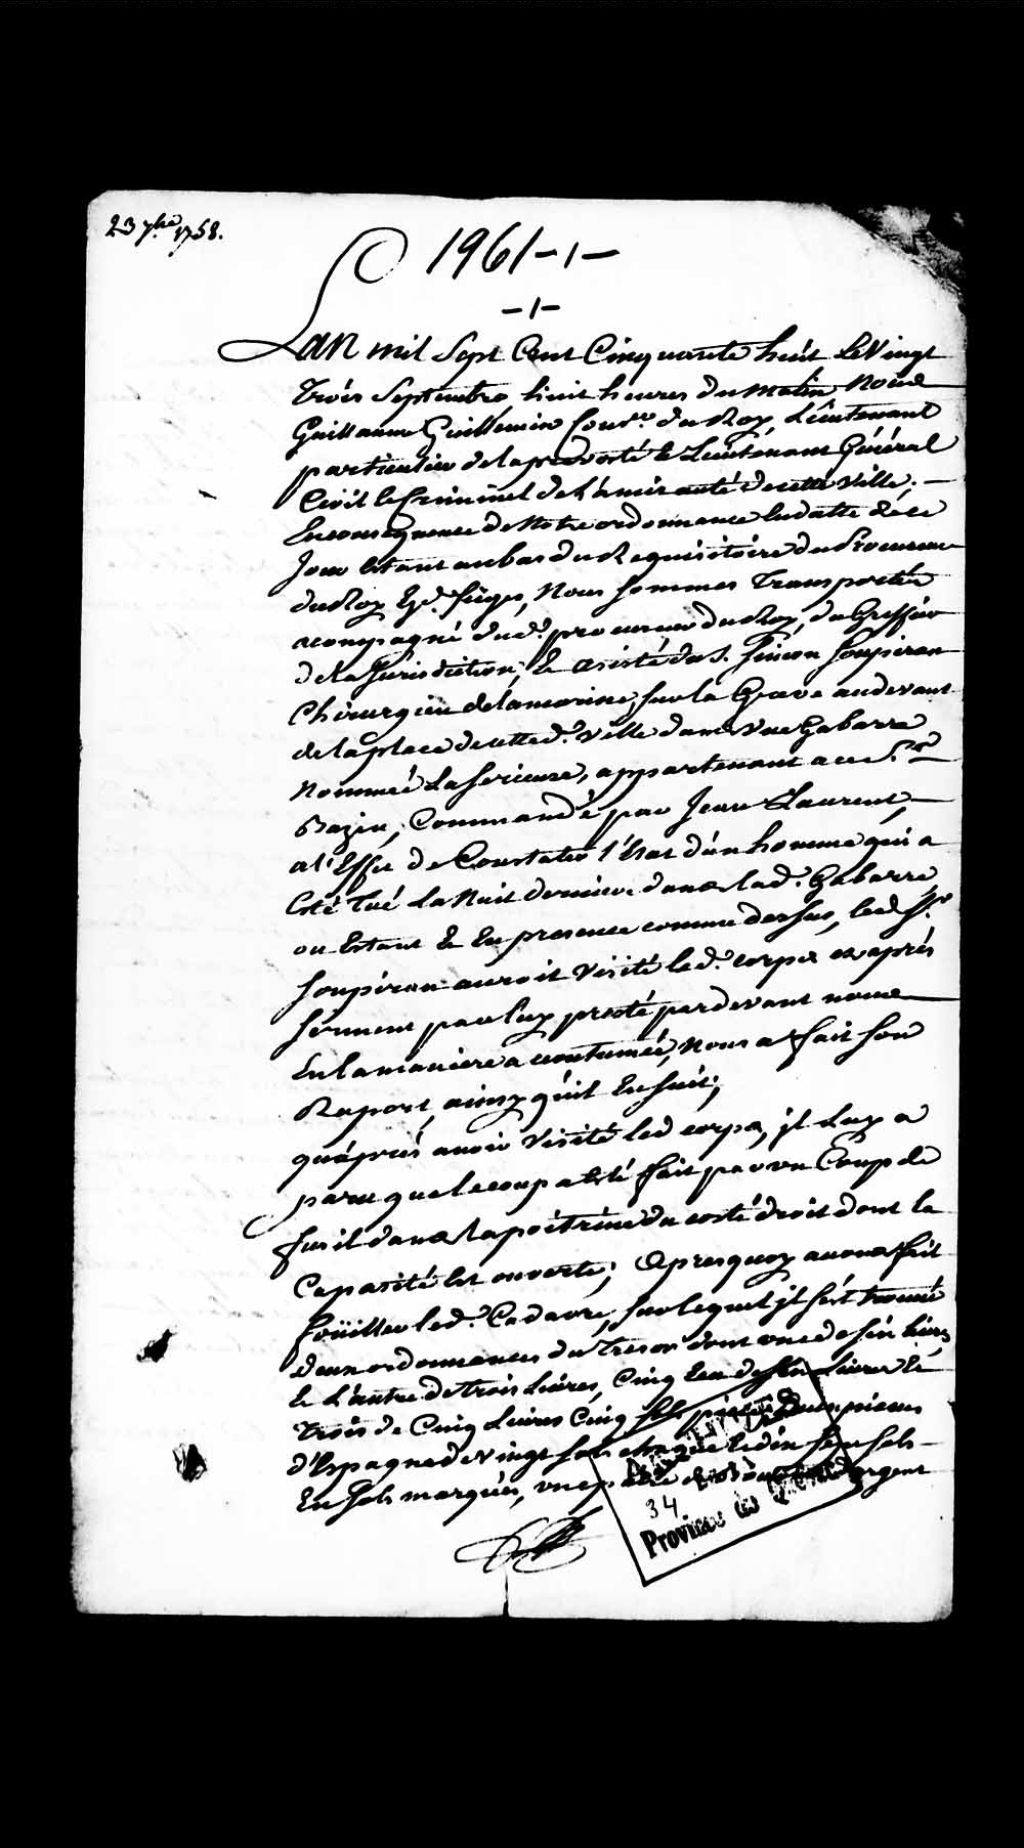 23 7bre 1758.
1961-1-
-1-
Lan mil Sept Cent Cinquante huit Le Vingt
Trois Septembre, huit heures du matin Nous
Guillaume Guillemin Conser. du Roy, Lieutenant
particulier de la prevosté & Lieutenant Général
Civil & Criminel de L'amirauté de cette Ville;
En consequence de Notre ordonnance En datte de ce
Jour Estant au bas du Requisitoire du Procureur
du Roy Esd. Sieges, Nous sommes Transportés
acompagné dud. procureur du Roy, du Greffier
de la Jurisdiction, & assisté du S. Simon Soupiran
Chirurgien de la marine, sur la Greve au devant
de la place de cette d. Ville dans Une Gabarre
Nommée La Serieuse, appartenant au S.r
Bazin, Commandée par Jean Laurent,
a l'Effet de Constater l'Etat d'un homme qui a
Esté Tué La Nuit derniere dans lad. Gabarre
ou Estant & En presence comme dessus, led S.r
Soupiran auroit Visité led. corps et après
serment par luy presté pardevant nous
En la maniere acoutumée, Nous a fait son
Raport, ainsy qu'il Ensuit;
qu'après avoir Visité led corps, jl Luy a
paru que le coup a Eté fait par un Coup de
fusil dans la poitrine du costé droit dont la
Capasité Est ouverte; Apres quoy avons fait
foüiller led. Cadavre, sur lequel jl s'est trouvé
deux ordonnances du Tresor dont une de six livres
& L'autre de Trois Livres, Cinq de Six Livres &
Trois de Cinq Livres Cinq sols deux pieces
d'Espagne de vingt sols chaque
En sols marqués, une paire de d'argent
34
Province de Québec